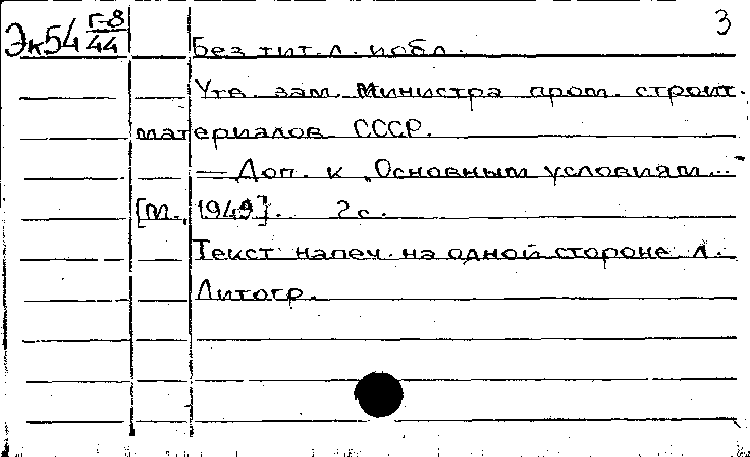 Эк54 Г-8/44 3
Без тит. л. и обл.
Утв. зам. Министра пром. строит.
материалов СССР.
— Доп. к „Основным условиям...
[М., 1949]. 2 с.
Текст напеч. на одной стороне л.
Литогр.